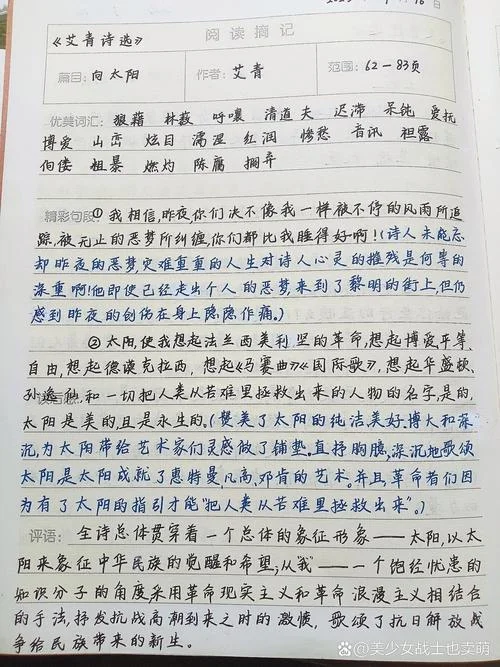 《艾青诗选》 阅读摘记
篇目：向太阳 作者：艾青 范围：62—83页
优美词汇：狼藉 林薮 呼嚷 清道夫 迟滞 呆钝 爱抚
博爱 山峦 炫目 濡湿 红润 惨愁 音讯 袒露
佝偻 粗暴 燃灼 陈腐 搁弃
精彩句段①我相信，昨夜，你们决不像我一样被不停的风雨所追
踪，被无止的恶梦所纠缠，你们都比我睡得好啊！（诗人未能忘
却昨夜的恶梦，灾难重重的人生对诗人心灵的摧残是何等的
深重啊！他即使已经走出个人的恶梦，来到了黎明的街上，但仍
感到昨夜的创伤在身上隐隐作痛。）
②太阳，使我想起法兰西美利坚的革命，想起博爱平等、
自由，想起德谟克拉西，想起《马赛曲》《国际歌》，想起华盛顿、
孙逸仙，和一切把人类从苦难里拯救出来的人物的名字，是的，
太阳是美的，且是永生的。（赞美了太阳的纯洁美好、博大和深
沉，为太阳带给艺术家们灵感做了铺垫。直抒胸臆，深沉地歌颂
太阳是太阳成就了惠特曼、凡高、邓肯的艺术。并且，革命者们因
为有了太阳的指引才能“把人类从苦难里拯救出来”。）
评语：全诗总体贯穿着一个总体的象征形象——太阳，以太
阳来象征中华民族的觉醒和希望；从“我”——一个饱经忧患的
知识分子的角度，采用革命现实主义和革命浪漫主义相结合
的手法，抒发抗战高潮到来之时的激愤，歌颂了抗日解放战
争给民族带来的新生。
@美少女战士也卖萌